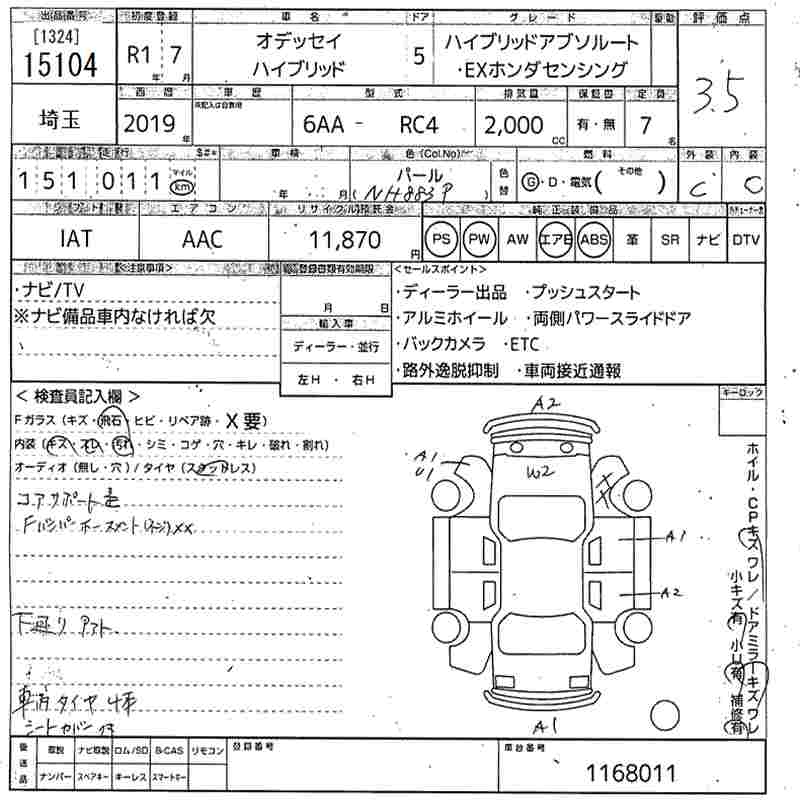 出品番号 初度登録 車名 ドア グレード 車歴 評価点
[1324]
15104 R1 7 オデッセイ 5 ハイブリッドアブソルート
年 月 ハイブリッド ・EXホンダセンシング 3.5
西暦 車歴 型式 排気量 保証書 定員
埼玉 2019 年 6AA - RC4 2,000 CC 有・無 7 名
走行 車検 色(Col.No) 燃料 外装 内装
151011 マイル km 年 月 パール (NH883P) 色替 G・D・電気( その他 ) C C
エアコン リサイクル預託金 純正装備品
IAT AAC 11,870 円 PS PW AW エアB ABS 革 SR ナビ DTV
<注意事項> 登録書類有効期限 <セールスポイント>
・ナビ/TV 月 日 ・ディーラー出品 ・プッシュスタート
※ナビ備品車内なければ欠 輸入車 ・アルミホイール ・両側パワースライドドア
ディーラー・並行 ・バックカメラ ・ETC
左H ・ 右H ・路外逸脱抑制 ・車両接近通報
<検査員記入欄> キーロック
Fガラス (キズ・飛石・ヒビ・リペア跡・X要)
内装 (キズ・スレ・汚れ・シミ・コゲ・穴・キレ・破れ・割れ)
オーディオ (無し・穴) / タイヤ (スタッドレス)
コアサポート
Fバンパー ホースメント XX
A2
A1
U1
W2
XX
A1
A2
A1
下廻り
車両 タイヤ 4本
シートカバー
ホイル・CPキズ ワレ / ドアミラーキズ ワレ
小キズ有 小U有 補修有
後送品 取説 ナビ取説 ロム/SD B-CAS リモコン 登録番号 車台番号
ナンバー スペアキー キーレス スマートキー 1168011